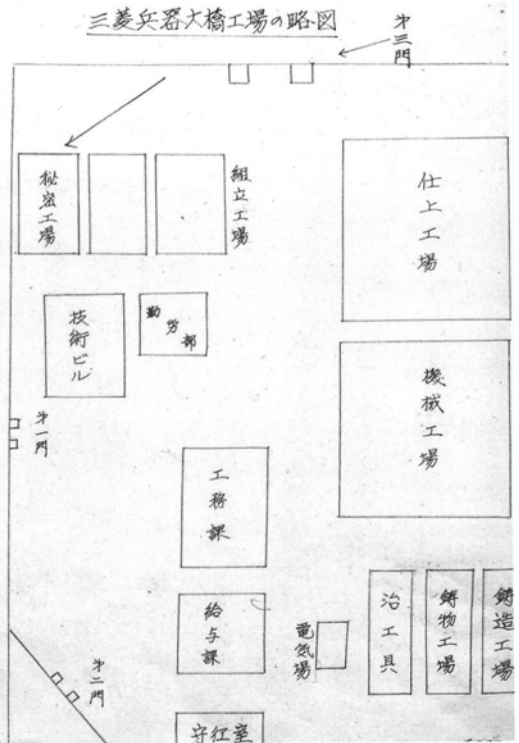 三菱兵器大橋工場の略図
才三門
秘密工場
組立工場
仕上工場
技術ビル
勤労部
機械工場
才一門
工務課
給与課
電気場
治工具
鋳物工場
鋳造工場
才二門
守衛室